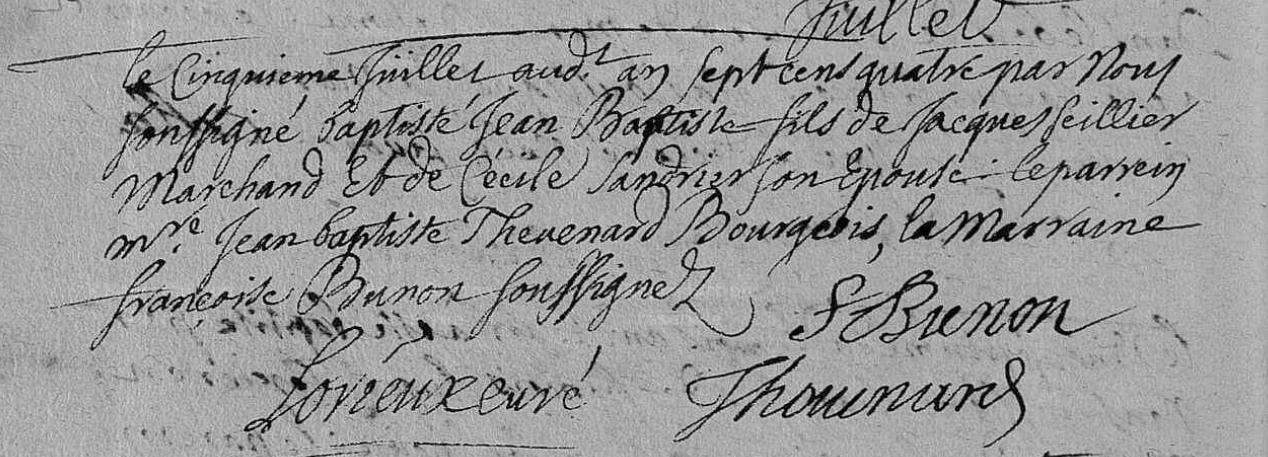 Juillet
le Cinquieme Juillet aud.t an sept cens quatre par Nous
soussigné baptisté Jean Baptiste fils de Jacques seillier
Marchand Et de Cécile Sandrier son Epouse. le parrein
mre. Jean baptiste Thevenard Bourgeois, la Marraine
françoise Bunon soussignez
F Bunon
Lorieux curé
Thevenard